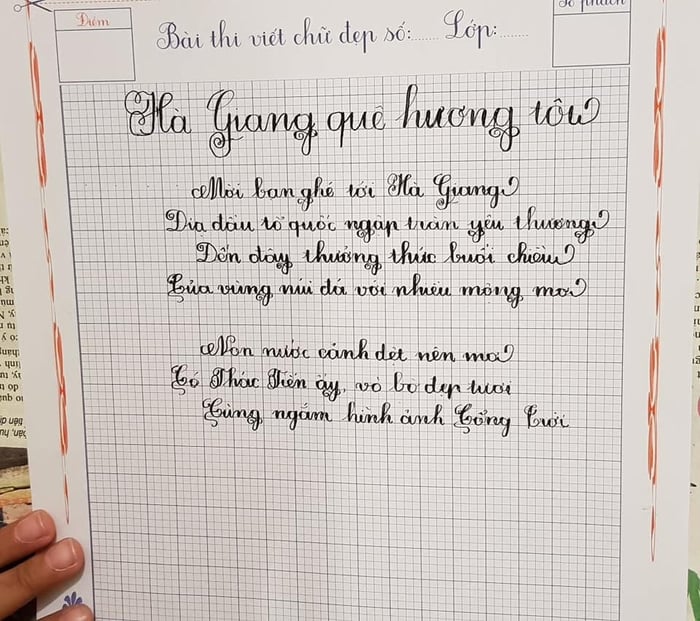 Điểm
Số phách
Bài thi viết chữ đẹp số:...... Lớp:......
Hà Giang quê hương tôi
Mời bạn ghé tới Hà Giang
Địa đầu tổ quốc ngập tràn yêu thương
Đến đây thưởng thức buổi chiều
Của vùng núi đá với nhiều mộng mơ
Non nước cảnh dệt nên mơ
Có Thác Tiên ấy, vô bo đẹp tươi
Cùng ngắm hình ảnh Cổng Trời